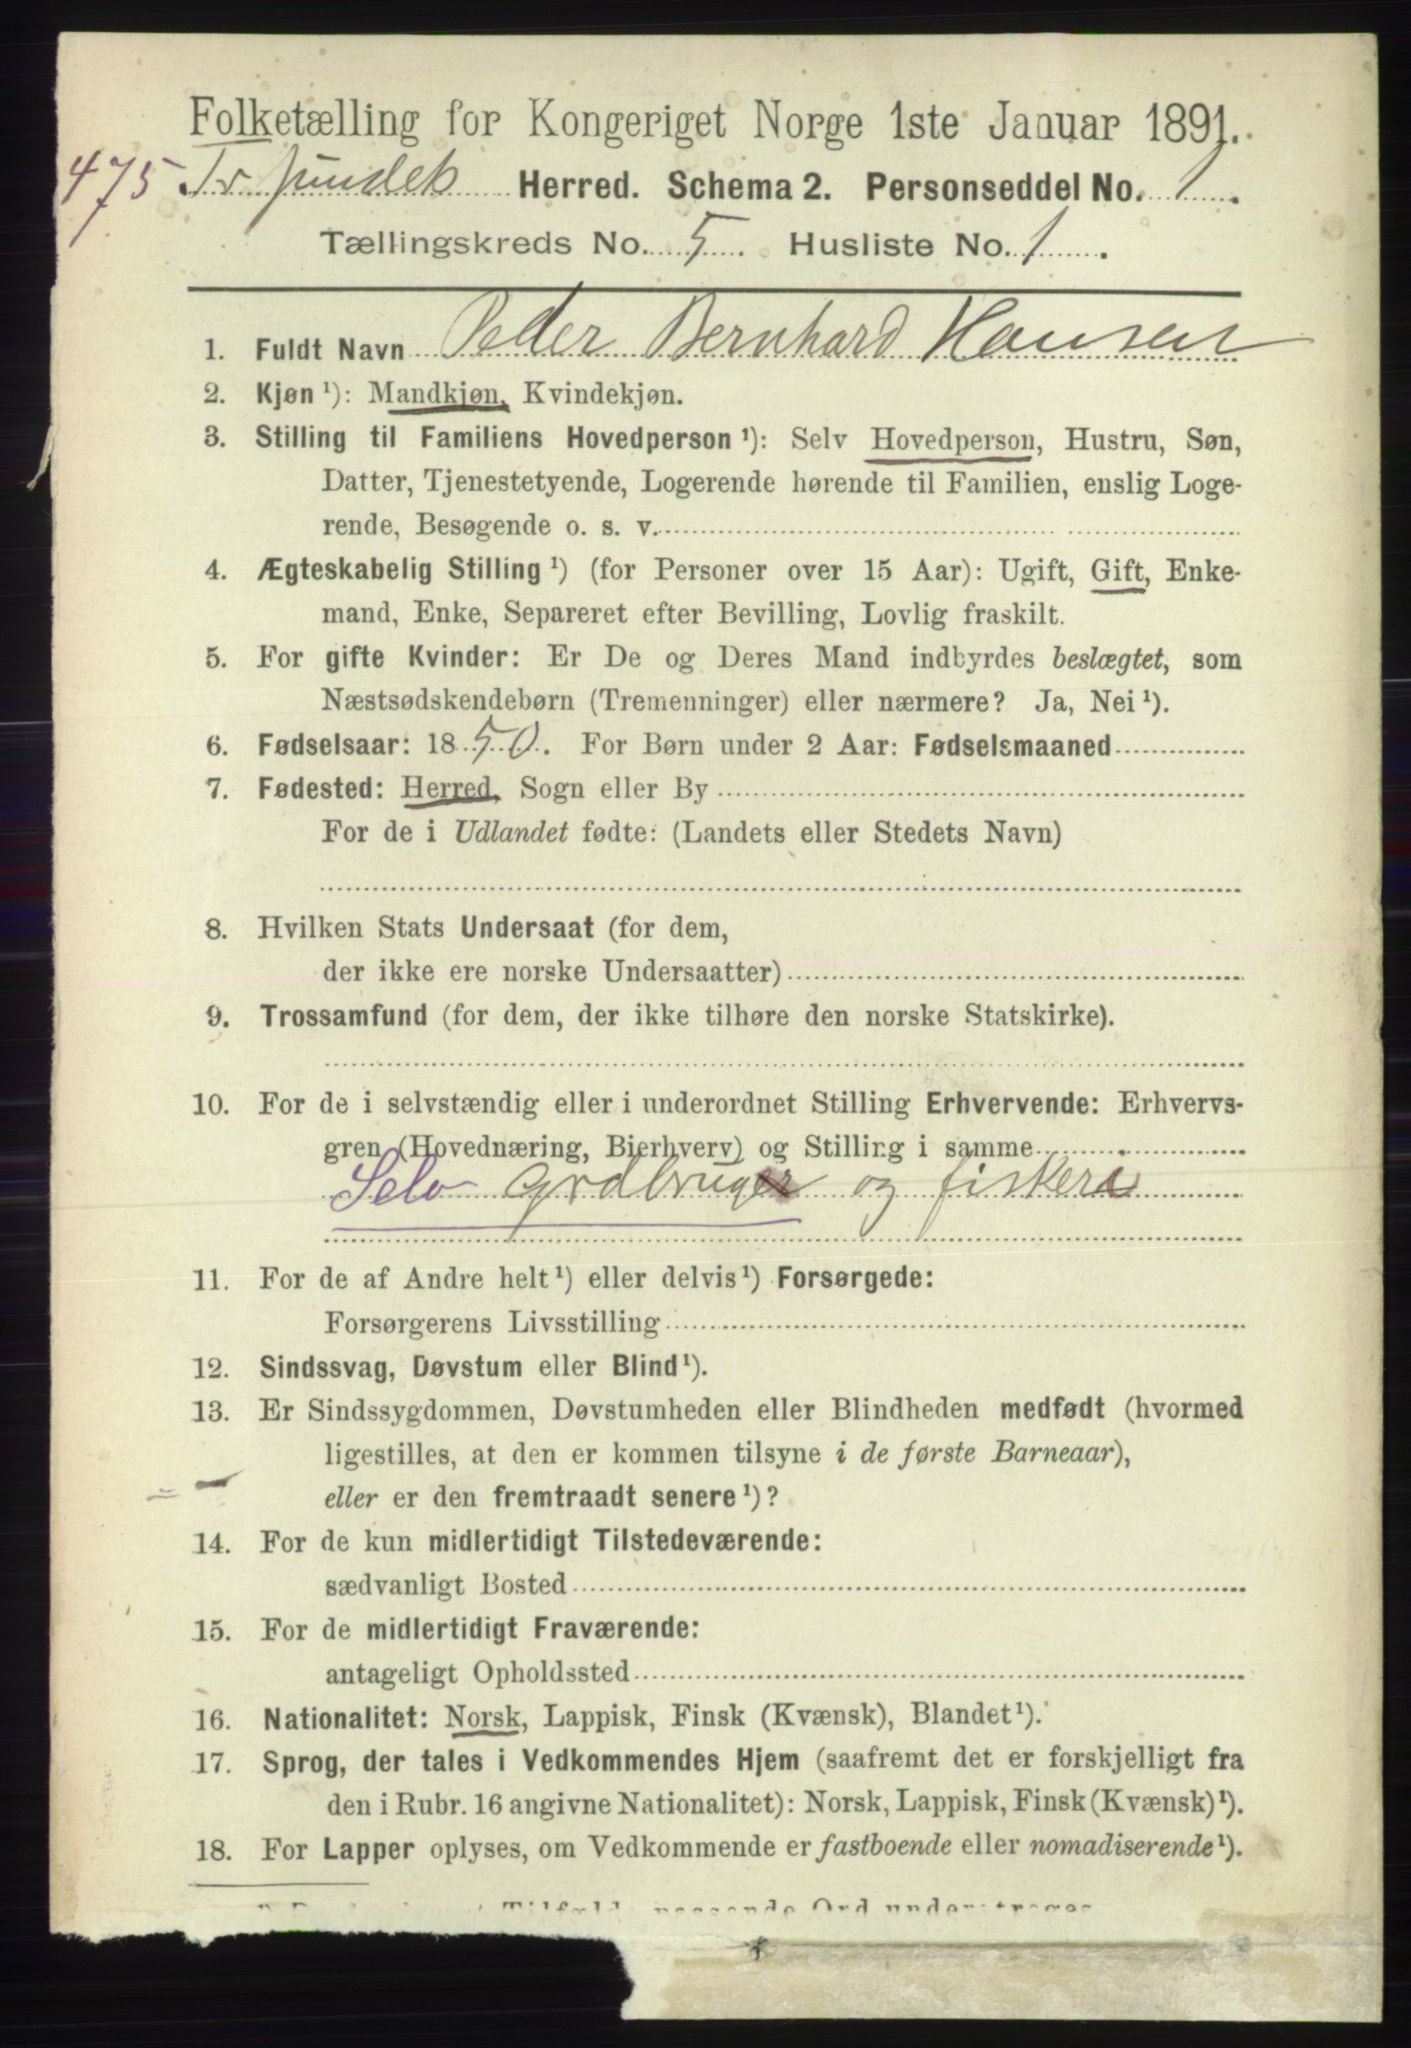 Folketælling for Kongeriget Norge 1ste Januar 1891.
475. Herred. Schema 2. Personseddel No. 1.
Tællingskreds No. 5. Husliste No. 1.
1. Fuldt Navn Peder Bernhard Hansen
2. Kjøn ¹): Mandkjøn, Kvindekjøn.
3. Stilling til Familiens Hovedperson ¹): Selv Hovedperson, Hustru, Søn,
Datter, Tjenestetyende, Logerende hørende til Familien, enslig Loge-
rende, Besøgende o. s. v.
4. Ægteskabelig Stilling ¹) (for Personer over 15 Aar): Ugift, Gift, Enke-
mand, Enke, Separeret efter Bevilling, Lovlig fraskilt.
5. For gifte Kvinder: Er De og Deres Mand indbyrdes beslægtet, som
Næstsødskendebørn (Tremenninger) eller nærmere? Ja, Nei ¹).
6. Fødselsaar: 1850. For Børn under 2 Aar: Fødselsmaaned
7. Fødested: Herred, Sogn eller By
For de i Udlandet fødte: (Landets eller Stedets Navn)
8. Hvilken Stats Undersaat (for dem,
der ikke ere norske Undersaatter)
9. Trossamfund (for dem, der ikke tilhøre den norske Statskirke).
10. For de i selvstændig eller i underordnet Stilling Erhvervende: Erhvervs-
gren (Hovednæring, Bierhverv) og Stilling i samme
Selv grdbruger og fisker
11. For de af Andre helt ¹) eller delvis ¹) Forsørgede:
Forsørgerens Livsstilling
12. Sindssvag, Døvstum eller Blind ¹).
13. Er Sindssygdommen, Døvstumheden eller Blindheden medfødt (hvormed
ligestilles, at den er kommen tilsyne i de første Barneaar),
eller er den fremtraadt senere ¹)?
14. For de kun midlertidigt Tilstedeværende:
sædvanligt Bosted
15. For de midlertidigt Fraværende:
antageligt Opholdssted
16. Nationalitet: Norsk, Lappisk, Finsk (Kvænsk), Blandet ¹).
17. Sprog, der tales i Vedkommendes Hjem (saafremt det er forskjelligt fra
den i Rubr. 16 angivne Nationalitet): Norsk, Lappisk, Finsk (Kvænsk) ¹).
18. For Lapper oplyses, om Vedkommende er fastboende eller nomadiserende ¹).
passende Ord understreges